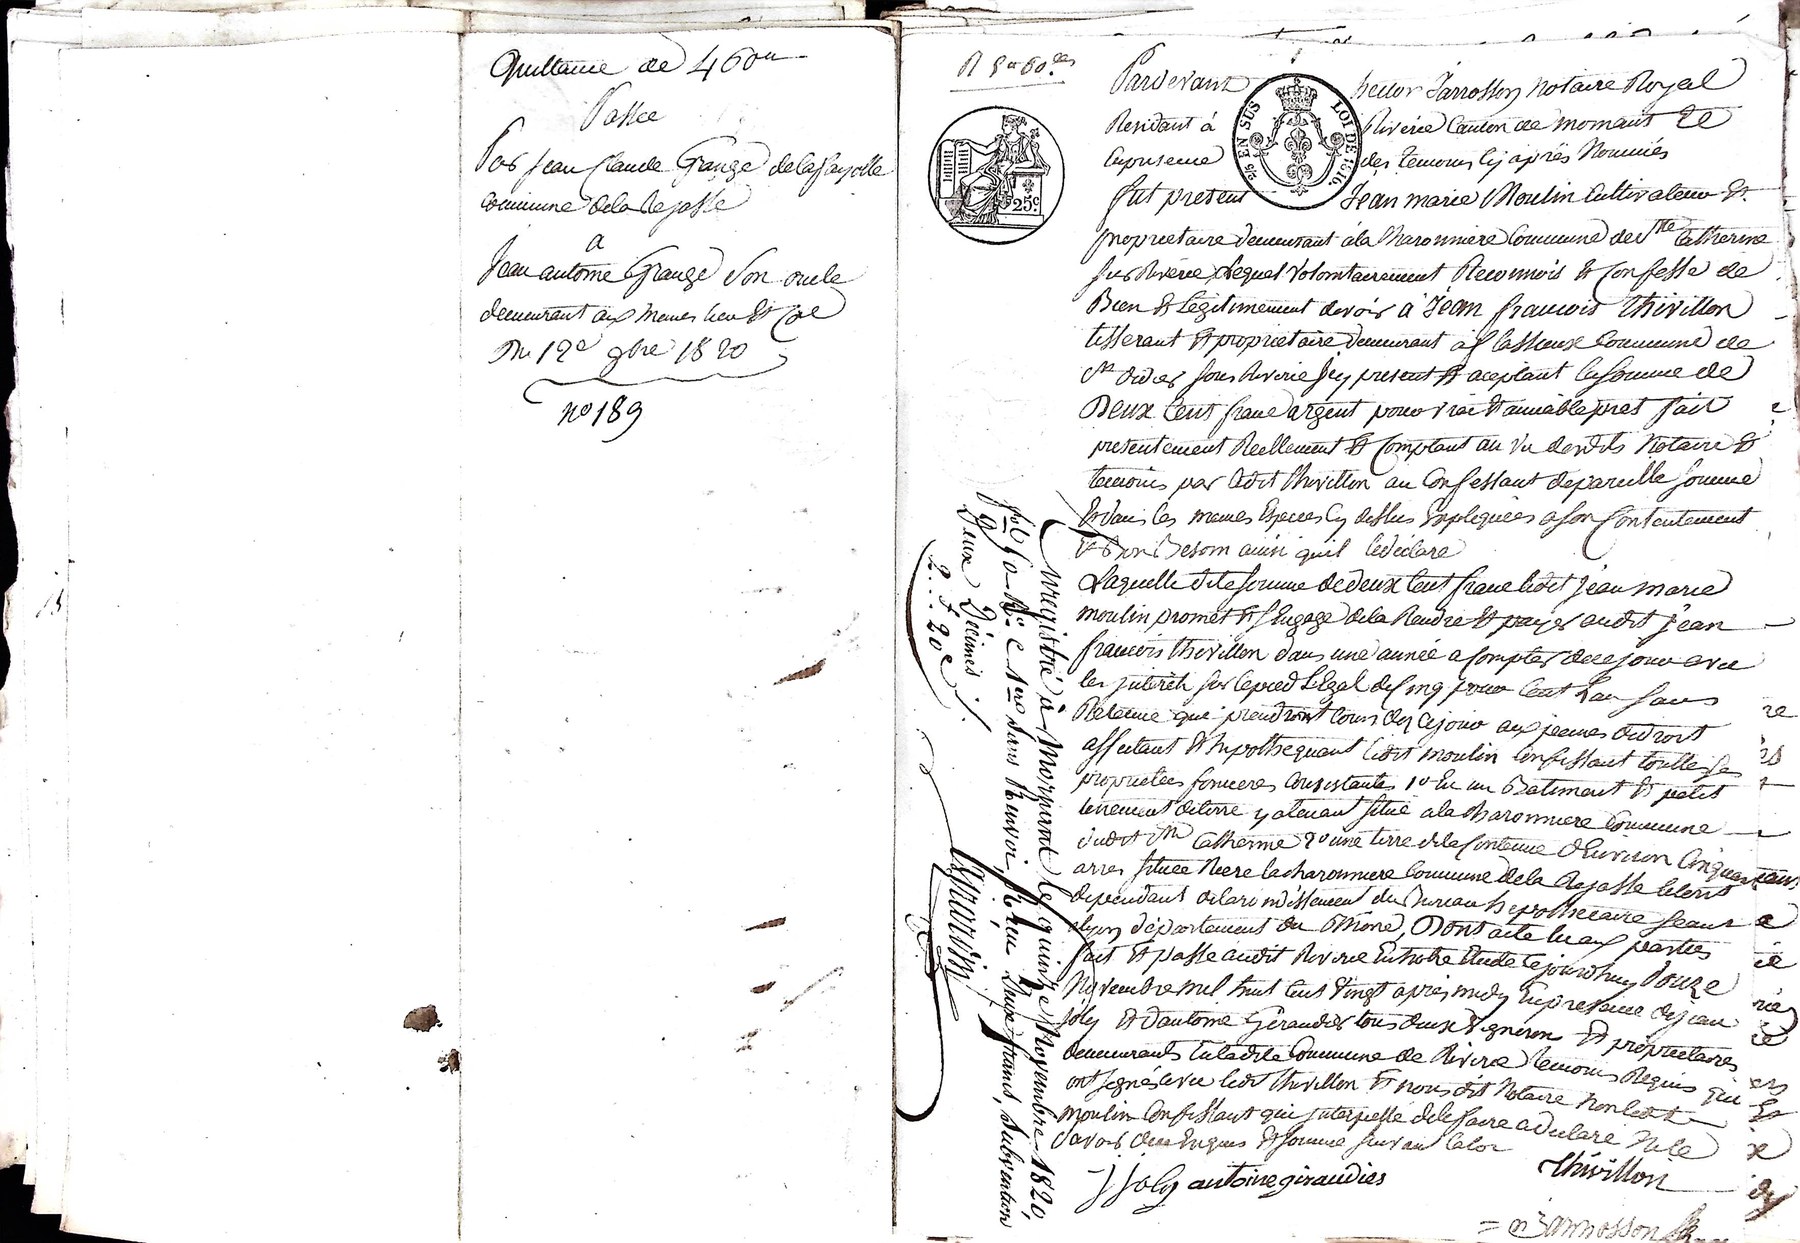 Quittance de 460 ll
Passée
Par Jean Claude Grange de la fayolle
Commune de la Rajasse
a
Jean antoine Grange Son oncle
demeurant aux memes lieu et Cne
Du 12e 9bre 1820
no 189
Pardevant hector Jarrosson Notaire Royal
Residant à Riverie Canton de mornant En
la presence des temoins Cy après Nommés
fut present Jean marie Moulin Cultivateur Et
proprietaire demeurant à la Charonniere Commune de Ste Catherine
sur Riverie Lequel volontairement Reconnois Et Confesse de
Bien Et Legitimement devoir à Jean francois Thivillon
tisserant Et proprietaire demeurant à Commune de
St didier sous Riverie Jcy present Et aceptant la somme de
Deux Cent franc argent pour vrai Et amiable pret fait
presentement Reellement Et Comptant au vu desdits Notaire Et
temoins par ledit Thivillon au Confessant de pareille somme
Et dans les memes Especes Cy dessus Expliquées a son Contentement
Et Son Besoin ainsi quil le declare
Laquelle dite somme de deux Cent franc ledit Jean marie
moulin promet Et s'Engage de la Rendre Et payer audit Jean
francois thivillon dans une année a Compter de ce jour avec
les jnterets sur le pied Légal de Cinq pour Cent L'an sans
Retenue qui prendront Cours des ce jour aux peines du droit
affectant Et hypothequant ledit moulin Confessant toutte ses
proprietées foncieres Consistantes 1o En un Batiment Et petit
tenement de terre y atenant situé a la Charonniere Commune
dudit Ste Catherine 2o une terre de la Contenue d'Environ Cinquante
arres située Vers la charonniere Commune de la Rajasse le tout
dependant de larondissement du Bureau hypothecaire seant a
Lyon département du Rhône, Dont acte lu aux parties
fait Et passé audit Riverie En notre Etude Cejourdhuy Douze
Novembre mil huit Cent Vingt après midy En presence de jean
joly Et d'antoine Giraudier tous deux Vigneron Et proprietaires
demeurants En ladite Commune de Riverie temoins Requis qui
ont signés avec ledit Thivillon Et nous dit Notaire Non ledit
moulin Confessant qui jnterpellé de le faire a declaré Ne le
Savoir de ce Enquis Et sommé suivant la loi
j joly antoine giraudier
Thivillon
Jarrosson
R 5 ll 60 ces
25 EN SUS
LOI DE 1816.
25c
Enregistré à Mornant le quinze Novembre 1820,
fo 60 Ro C 1ere sans Renvoi, Reçu Deux francs, subvention
Deux Décimes.
2..f..20c.